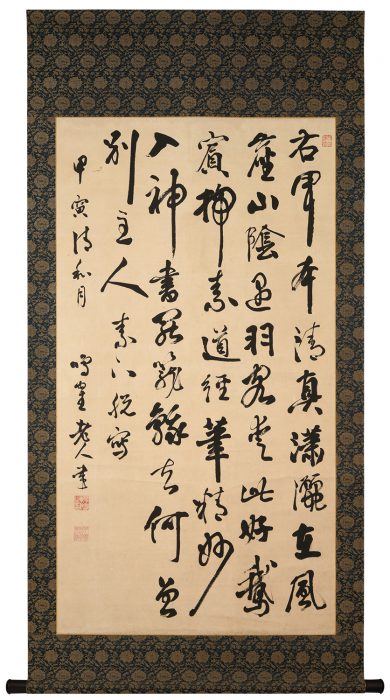 右軍本清真瀟灑在風
塵山陰遇羽客愛此好鵞
賓掃素道經筆精妙
入神書罷籠鵝去何曾
別主人 素下脱寫
甲寅清和月 鳴隺老人書